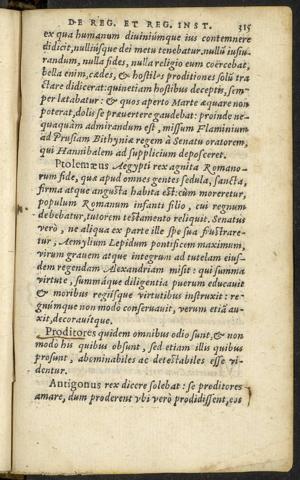 DE REG. ET REG. INST. 315
ex qua humanum diuinúmque ius contemnere
didicit, nulliúsque dei metu tenebatur, nullũ iusiu-
randum, nulla fides, nulla religio eum coërcebat,
bella enim, cædes, & hostiles proditiones solũ tra
ctare didicerat: quinetiam hostibus deceptis, sem-
per lætabatur: & quos aperto Marte æquare non
poterat, dolis se præuertere gaudebat: proinde ne-
quaquàm admirandum est, missum Flaminium
ad Prusiam Bithyniæ regem à Senatu oratorem,
qui Hannibalem ad supplicium deposceret.
Ptolemæus Aegypti rex agnita Romano-
rum fide, quæ apud omnes gentes sedula, sancta,
firma atque angusta habita est: cùm moreretur,
populum Romanum infanti filio, cui regnum
debebatur, tutorem testamento reliquit. Senatus
verò, ne aliqua ex parte ille spe sua frustrare-
tur, Aemylium Lepidum pontificem maximum,
virum grauem atque integrum ad tutelam eius-
dem regendam Alexandriam misit: qui summa
virtute, summáque diligentia puerum educauit
& moribus regiísque virtutibus instruxit: re-
gnúmque non modò conseruauit, verum etiã au-
xit, decorauitque.
Proditores quidem omnibus odio sunt, & non
modò his quibus obsunt, sed etiam illis quibus
prosunt, abominabiles ac detestabiles esse vi-
dentur.
Antigonus rex dicere solebat: se proditores
amare, dum proderent vbi verò prodidissent, eos